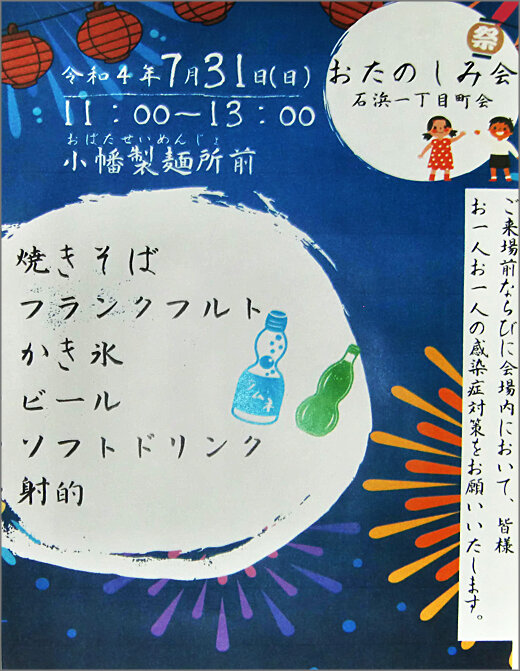 祭
おたのしみ会
石浜一丁目町会
令和4年7月31日(日)
11:00〜13:00
おばたせいめんじょ
小幡製麺所前
焼きそば
フランクフルト
かき氷
ビール
ソフトドリンク
射的
ラムネ
ご来場前ならびに会場内において、皆様
お一人お一人の感染症対策をお願いいたします。